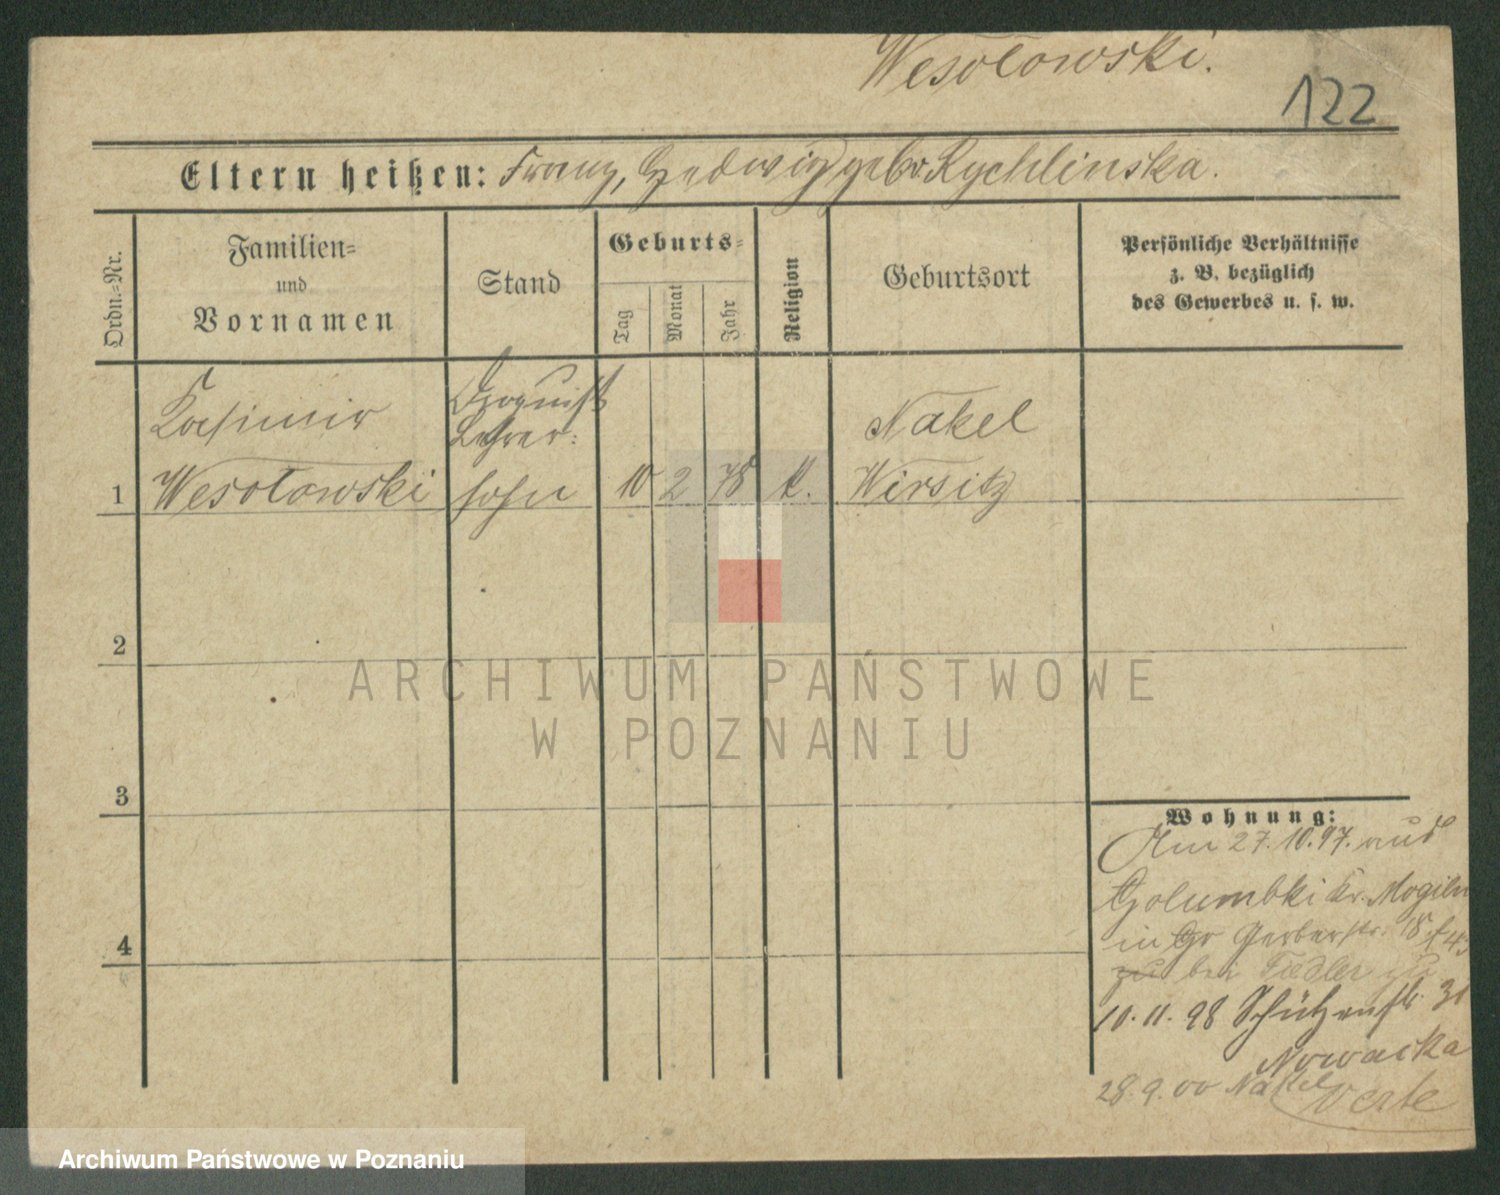 Wesołowski.
122
Eltern heißen: Franz, Hedwig geb. Rychlinska.
Ordn.=Nr.
Familien=
und
Vornamen
Stand
Geburts=
Tag
Monat
Jahr
Religion
Geburtsort
Persönliche Verhältnisse
z. B. bezüglich
des Gewerbes u. s. w.
Kasimir
Wesołowski
Droguist
Lehrer=
sohn
1
10 2 78 k.
Nakel
Wirsitz
2
3
4
Wohnung:
Am 27.10.97. aus
Golumbki Kr. Mogiln
in Gr Gerberstr. 18
bei Fiedler zu
10.11.98 Schützenstr. 31
Nowacka
28.9.00 Nakel
verte
ARCHIWUM PAŃSTWOWE
W POZNANIU
Archiwum Państwowe w Poznaniu